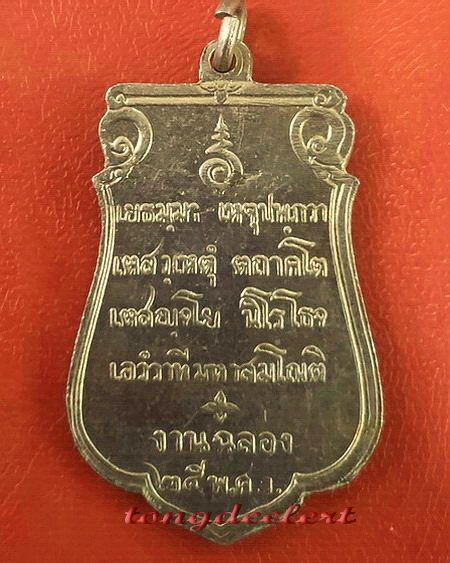 เยธมฺมา เหตุปฺปภวา
เตสํ เหตุํ ตถาคโต
เตสญฺจโย นิโรโธจ
เอวํวาทีมหาสมโณติ
งานฉลอง
๒๕ พ.ศ.ว.
tongdeelert